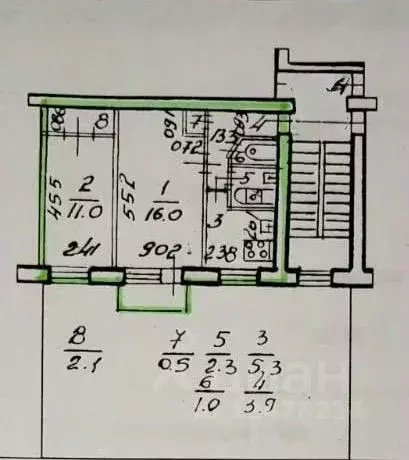 8
7
4
133
072
6
5
2
11.0
1
16.0
455
552
3
241
902
238
8
2.1
7
0.5
5
2.3
3
5.3
6
1.0
4
3.9